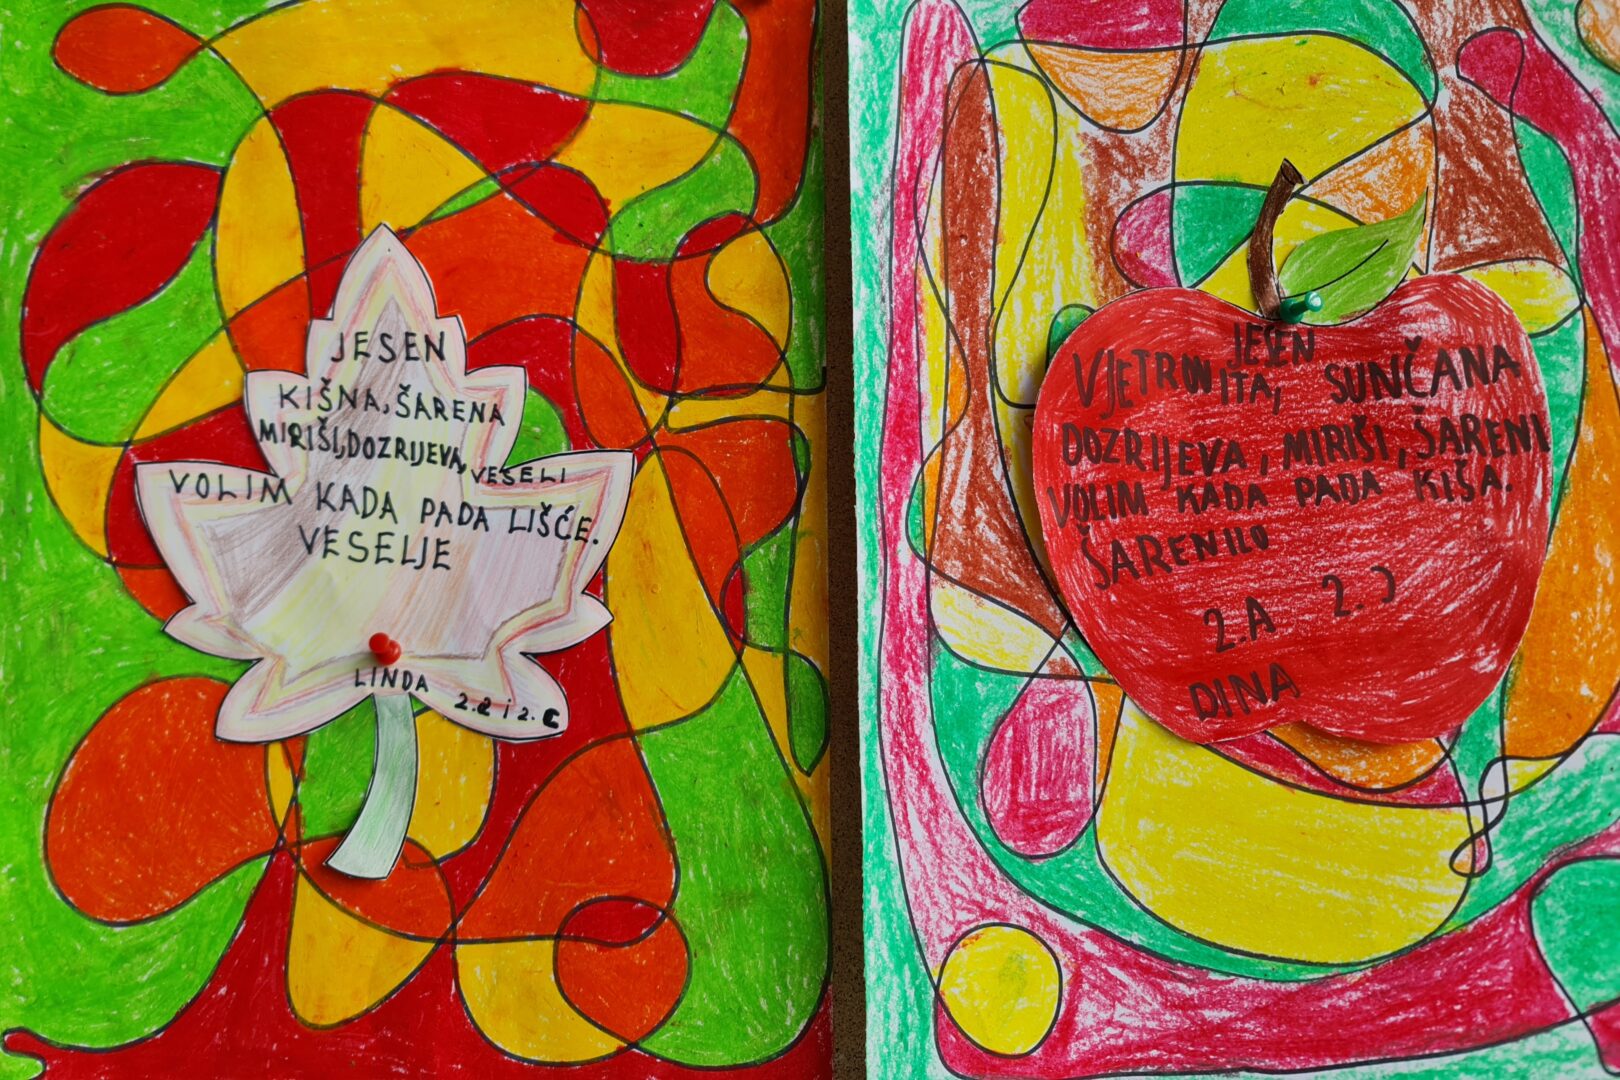 JESEN
KIŠNA, ŠARENA
MIRIŠI, DOZRIJEVA, VESELI
VOLIM KADA PADA LIŠĆE.
VESELJE
LINDA 2.a i 2.C
JESEN
VJETROVITA, SUNČANA
DOZRIJEVA, MIRIŠI, ŠARENI
VOLIM KADA PADA KIŠA.
ŠARENILO
2.A
DINA